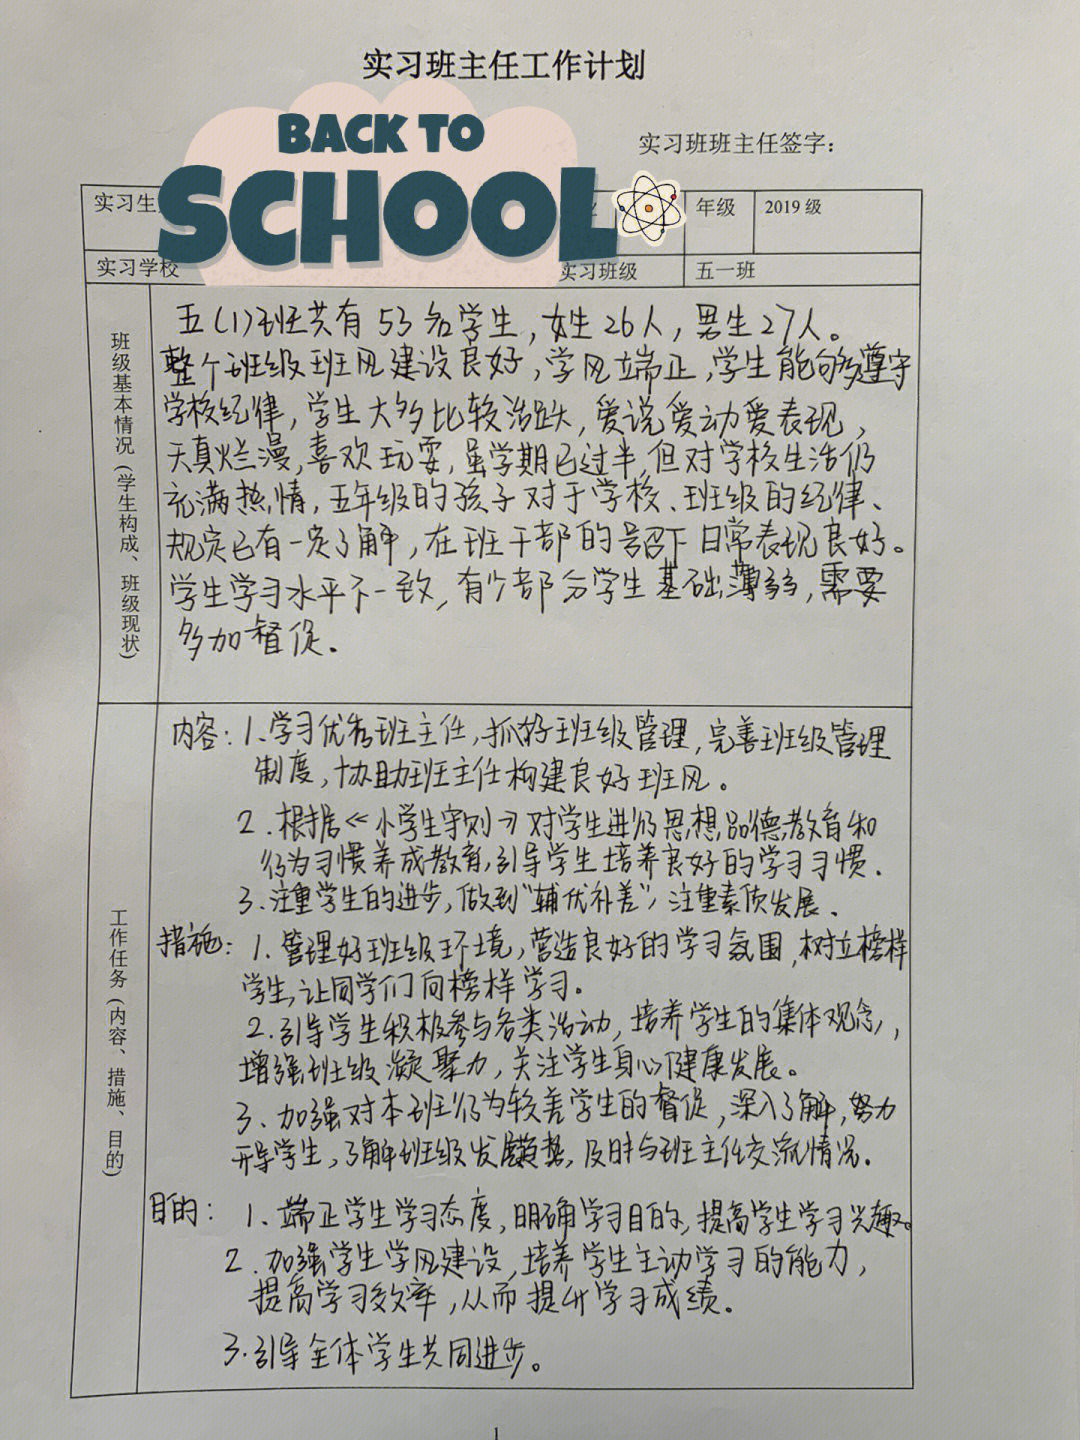 实习班主任工作计划
BACK TO
SCHOOL
实习班班主任签字：
实习生 年级 2019 级
实习学校 实习班级 五一班
班级基本情况（学生构成、班级现状）
五(1)班共有53名学生，女生26人，男生27人。
整个班级班风建设良好，学风端正，学生能够遵守
学校纪律，学生大多比较活跃，爱说爱动爱表现，
天真烂漫，喜欢玩耍，虽学期已过半，但对学校生活仍
充满热情，五年级的孩子对于学校、班级的纪律、
规定已有一定了解，在班干部的号召下日常表现良好。
学生学习水平不一致，有个部分学生基础薄弱，需要
多加督促。
工作任务（内容、措施、目的）
内容：1、学习优秀班主任，抓好班级管理，完善班级管理
制度，协助班主任构建良好班风。
2．根据《小学生守则》对学生进行思想品德教育和
行为习惯养成教育，引导学生培养良好的学习习惯．
3．注重学生的进步，做到“辅优补差”，注重素质发展．
措施：1、管理好班级环境，营造良好的学习氛围，树立榜样
学生，让同学们向榜样学习。
2．引导学生积极参与各类活动，培养学生的集体观念，
增强班级凝聚力，关注学生身心健康发展。
3、加强对本班行为较差学生的督促，深入了解，努力
开导学生，了解班级发展趋势，及时与班主任交流情况．
目的：1、端正学生学习态度，明确学习目的，提高学生学习兴趣。
2．加强学生学风建设，培养学生主动学习的能力，
提高学习效率，从而提升学习成绩。
3．引导全体学生共同进步。
1